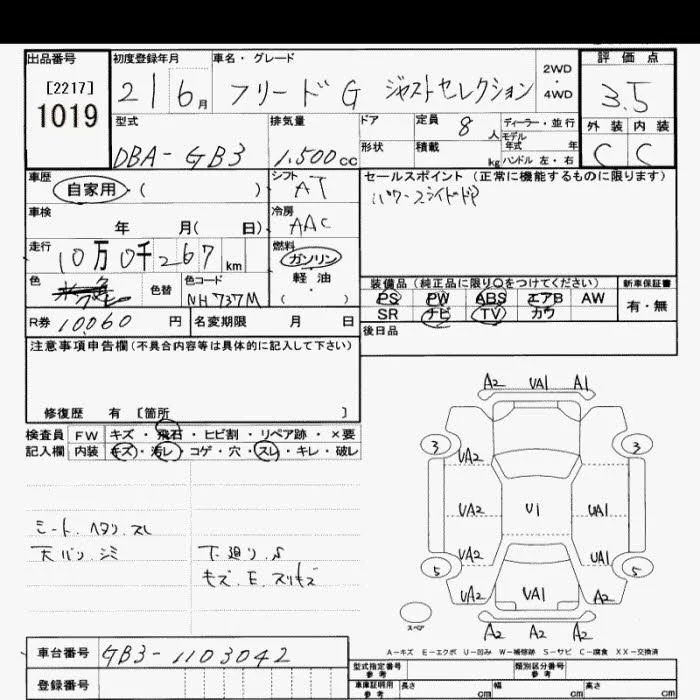 出品番号 初度登録年月 車名・グレード 2WD・4WD 評価点
[2217]
1019
21 6月 フリード G ジャストセレクション 3.5
型式 排気量 ドア 定員 8人 ディーラー・並行 外装 内装
モデル年式 年
DBA-GB3 1.500cc 形状 積載 kg ハンドル 左・右 C C
車歴 シフト セールスポイント(正常に機能するものに限ります)
自家用・( ) AT パワースライドドア
車検 冷房
年 月( 日) AAC
走行 燃料
10万0千267km ガソリン
軽油
・( )
色 色替 色コード 装備品(純正品に限り○をつけてください) 新車保証書
NH737M PS PW ABS エアB AW 有・無
SR ナビ TV カワ
R券 10,060円 名変期限 月 日 後日品
注意事項申告欄(不具合内容等は具体的に記入して下さい)
修復歴 有 [箇所 ]
検査員 FW キズ・飛石・ヒビ割・リペア跡・×要
記入欄 内装 キズ・汚レ・コゲ・穴・スレ・キレ・破レ
A2 UA1 A1
3 3
UA2
UA2 U1 UA1
UA2 UA1
5 5
UA2 UA1 A2
スペア
A2 A2 A2
シート ヘタリ スレ
天バリ シミ 下廻り S
キズ E スリキズ
A-キズ E-エクボ U-凹み W-補修跡 S-サビ C-腐食 XX-交換済
車台番号 GB3-1103042
登録番号
型式指定番号 参考 類別区分番号 参考
車庫証明用 参考 長さ cm 幅 cm 高さ cm